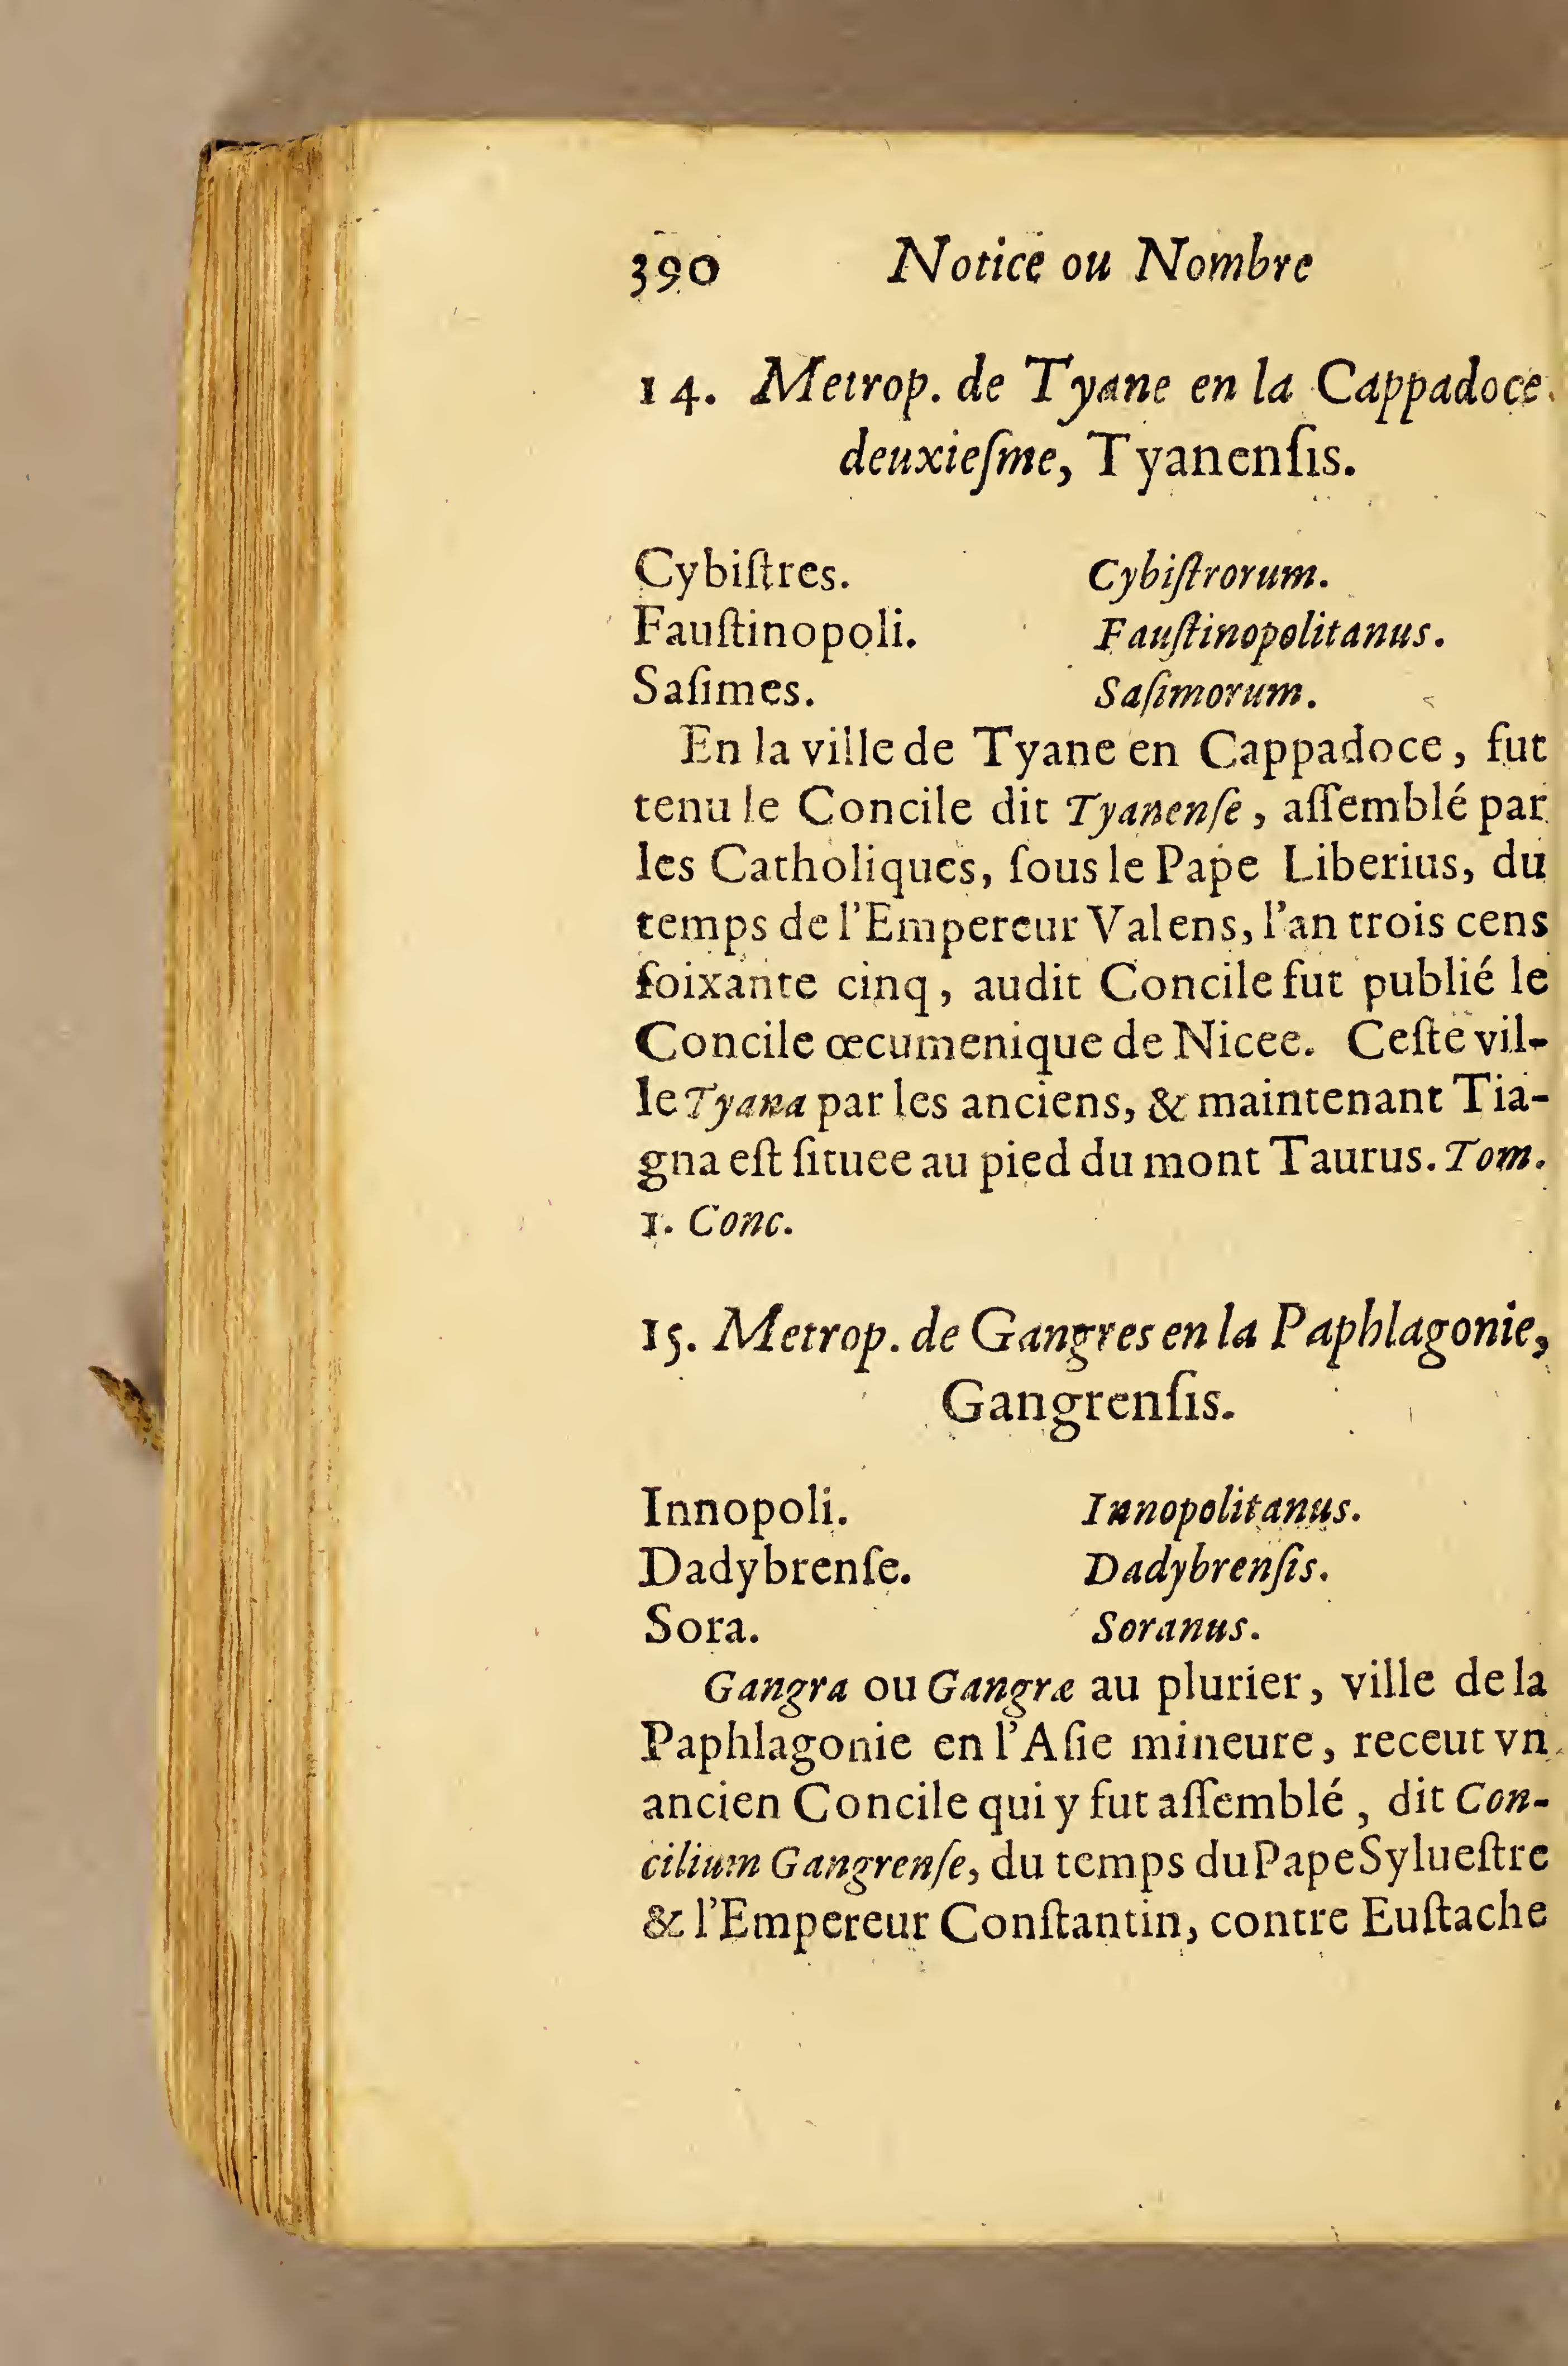 390 Notice ou Nombre
14. Metrop. de Tyane en la Cappadoce
deuxieſme, Tyanenſis.
Cybiſtres. Cybiſtrorum.
Fauſtinopoli. Fauſtinopolitanus.
Saſimes. Saſimorum.
En la ville de Tyane en Cappadoce, fut
tenu le Concile dit Tyanenſe, aſſemblé par
les Catholiques, ſous le Pape Liberius, du
temps de l'Empereur Valens, l'an trois cens
ſoixante cinq, audit Concile fut publié le
Concile œcumenique de Nicee. Ceſte vil-
le Tyana par les anciens, & maintenant Tia-
gna eſt ſituee au pied du mont Taurus. Tom.
1. Conc.
15. Metrop. de Gangres en la Paphlagonie,
Gangrenſis.
Innopoli. Innopolitanus.
Dadybrenſe. Dadybrenſis.
Sora. Soranus.
Gangra ou Gangræ au plurier, ville de la
Paphlagonie en l'Aſie mineure, receut vn
ancien Concile qui y fut aſſemblé, dit Con-
cilium Gangrenſe, du temps du Pape Sylueſtre
& l'Empereur Conſtantin, contre Euſtache